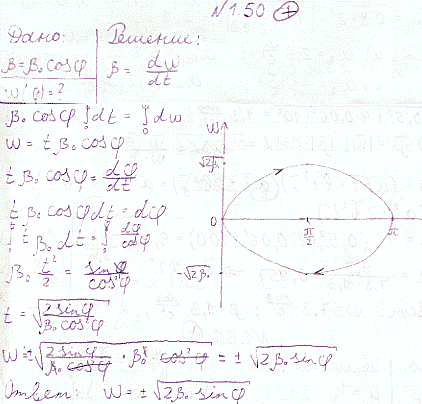 N 1.50 (+)
Дано: Решение:
β = β₀ cosφ β = dw/dt
w(φ) = ?
β₀ cosφ ∫₀ᵗ dt = ∫₀ʷ dw
w = t β₀ cosφ
t β₀ cosφ = dφ/dt
t β₀ cosφ dt = dφ
∫₀ᵗ t β₀ dt = ∫₀^φ dφ/cosφ
β₀ t²/2 = sinφ/cos²φ
t = √(2 sinφ / β₀ cos²φ)
w = ± √(2 sinφ / β₀ cos²φ · β₀² cos²φ) = ± √(2β₀ sinφ)
Ответ: w = ± √(2β₀ sinφ)
w
√2β₀
0 π/2 π
-√2β₀